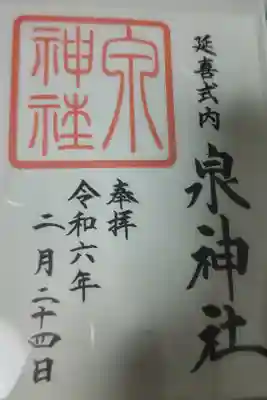 延喜式内
泉神社
奉拝
令和六年
二月二十四日
泉
神社